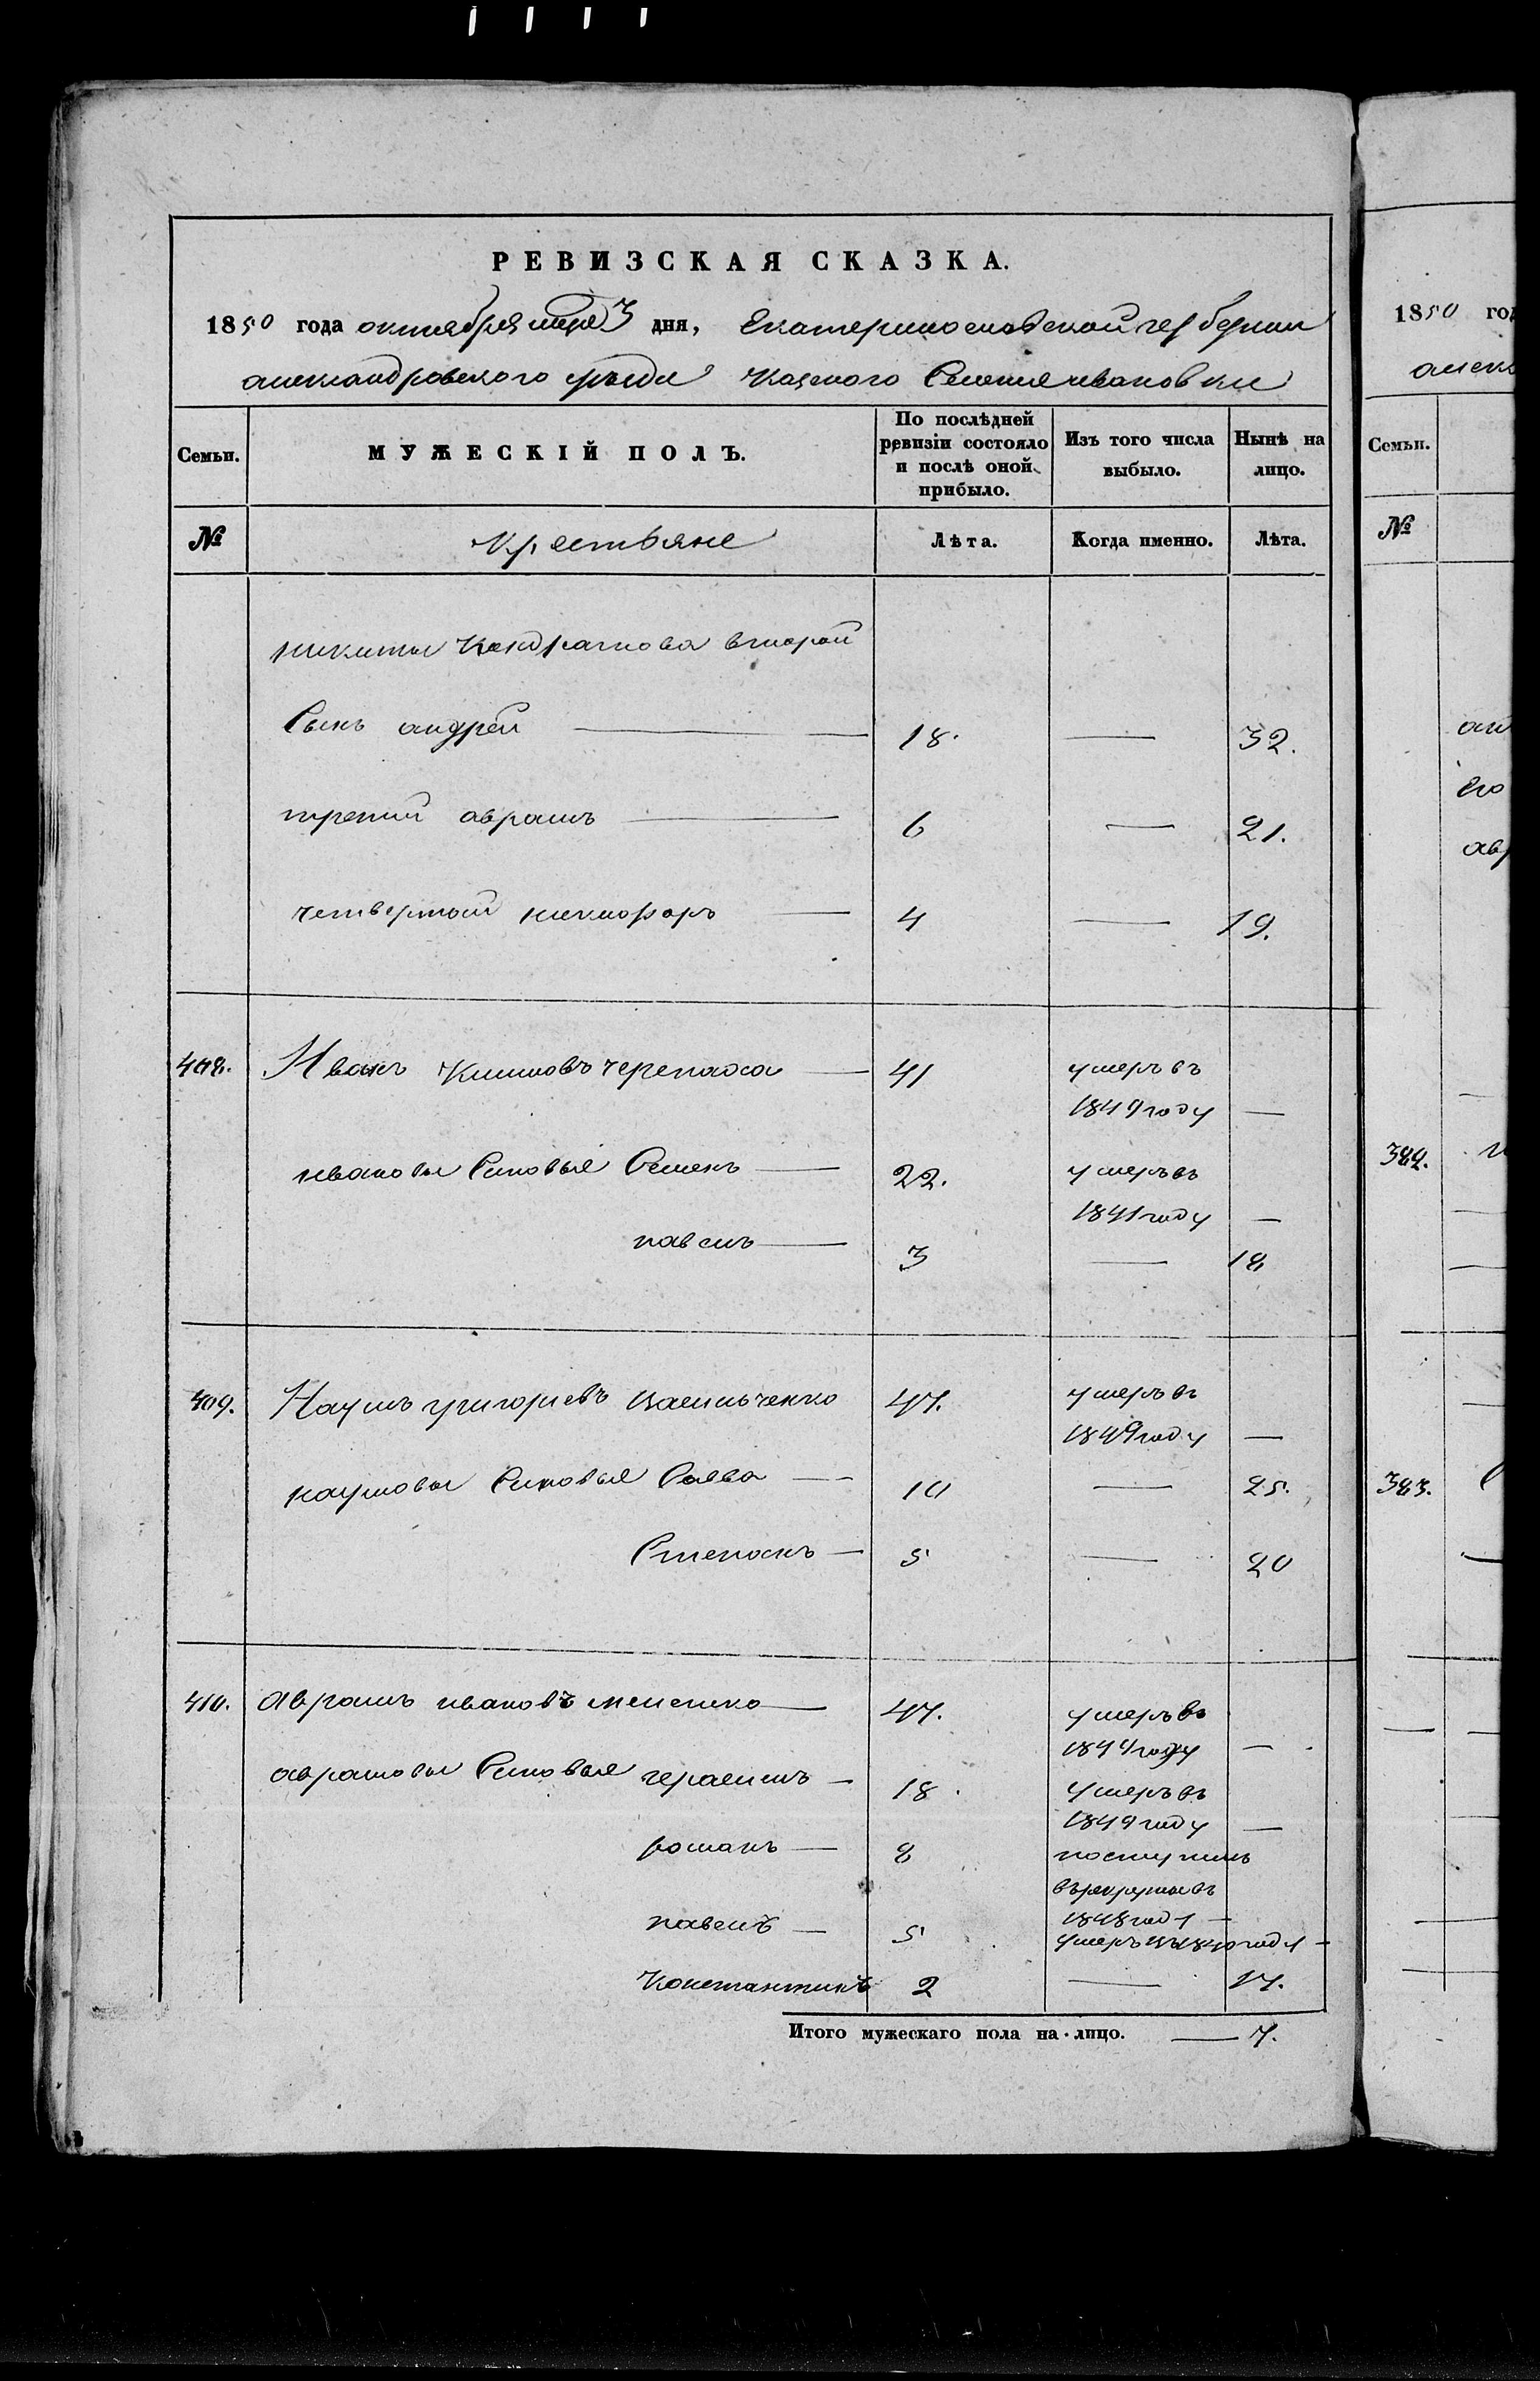 РЕВИЗСКАЯ СКАЗКА.
1850 года октября 3 дня, Екатеринославской губернии
александровского уезда казенного Селения ивановки
Семьи. МУЖЕСКІЙ ПОЛЪ. По послѣдней ревизіи состояло и послѣ оной прибыло. Изъ того числа выбыло. Нынѣ на лицо.
№ Крестьяне Лѣта. Когда именно. Лѣта.
никиты Кондратова второй
Сынъ андрей 18. — 32.
третий аврамъ 6 — 21.
четвертый никифоръ 4 — 19.
408. Иванъ Климовъ черепаха 41 умеръ въ
1849 году —
ивановы Сыновья Семенъ 22. умеръ въ
1841 году —
павелъ 3 — 18
409. Наумъ григориевъ Васильченко 47. умеръ въ
1849 году —
наумовы Сыновья Савва 10 — 25.
Степанъ 5 — 20
410. аврамъ ивановъ 47. умеръ въ
1844 году —
аврамовы Сыновья герасимъ 18. умеръ въ
1849 году —
романъ 8 поступилъ
въ рекруты въ
1848 году —
павелъ 5 умеръ въ 1840 году —
Константинъ 2 — 17.
Итого мужескаго пола на лицо. — 7.
1850 год
алекс
Семьи.
№
382.
383.